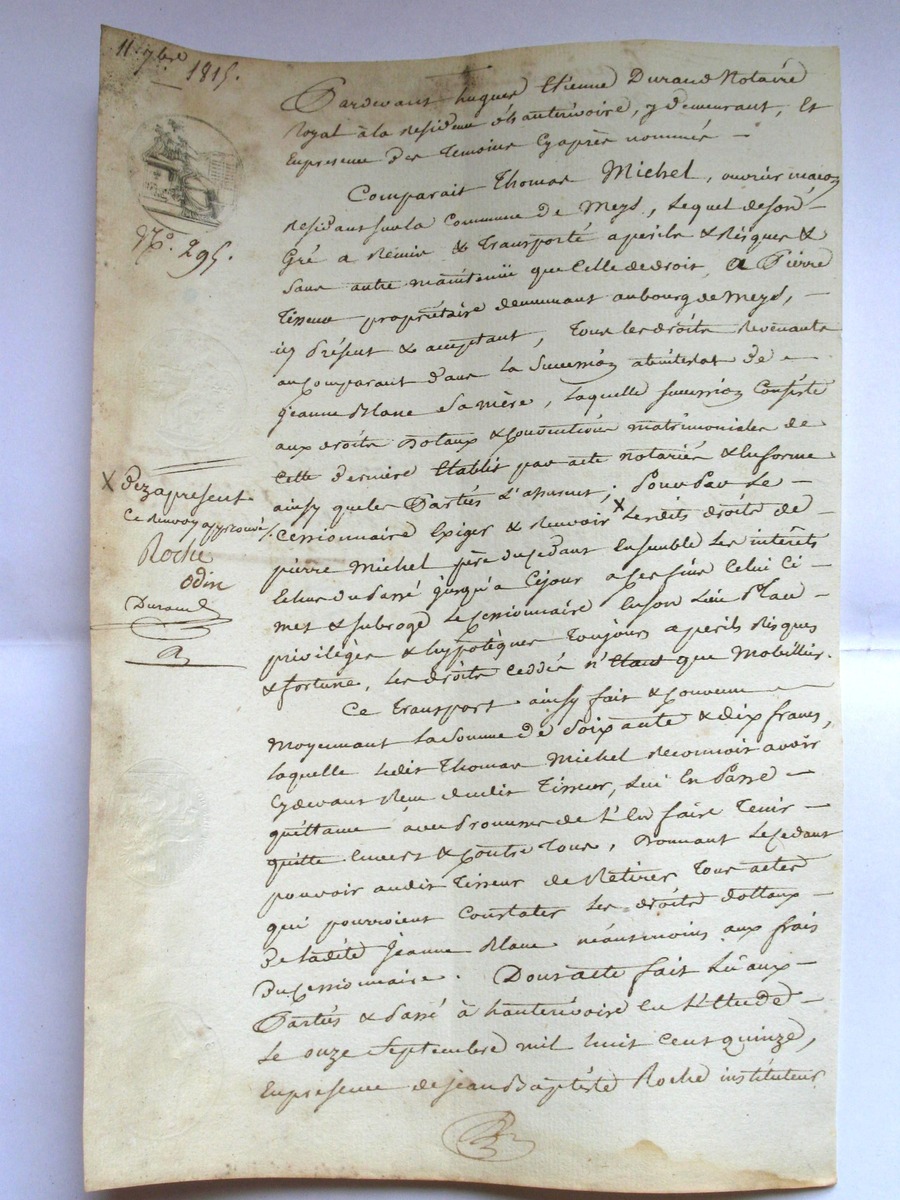 11 7bre
1815.
No. 295.
Pardevant hugues Etienne Durand Notaire
Royal à la Residence d'hauterivoire, y demeurant, Et
En presence des Temoins Cyaprès nommés —
Comparait Thomas Michel, ouvrier maçon
residant sur la Commune de Meys, Lequel de son —
Gré a Remis & Transporté a perils & Risques &
Sans autre maintenüe que Celle de droit, a Pierre
Tisseur propriétaire demeurant au bourg de meys, —
icy Présent & acceptant, Tous les droits Revenants
au Comparant dans la Succession abintestat de —
jeanne Blanc sa mère, Laquelle succession Consiste
aux droits Dotaux & Conventions matrimoniales de
Cette derniere Etablis par acte notariés & En forme
ainsy que les Parties L'assurent; Pour Par Le —
Cessionnaire Exiger & Recevoir X Lesdits droits de
pierre Michel père du Cedant Ensemble Les intérêts
Echus du Passé jusqu'a Cejour a Ces fins Celui Ci
met & subroge Le Cessionnaire En son Lieu Place —
privilèges & hypotèques Toujours a perils Risques
& fortune, Les droits Ceddés n'Etant que Mobilliers.
Ce Transport ainsy fait & Convenu
Moyennant La Somme de Soixante & dix francs,
Laquelle Ledit Thomas Michel Reconnoit avoir
Cydevant Reçue dudit Tisseur, Lui En Passe —
quittance avec Promesse de L'En faire Tenir —
quitte Envers & Contre Tous, Donnant Le Cedant
pouvoir audit Tisseur de Retirer Tous actes
qui pourroient Constater Les droits dottaux —
de Ladite Jeanne Blanc néantmoins aux frais
du Cessionnaire. Dont acte fait Lü aux —
Parties & Passé à hauterivoire En L'Etude —
Le onze Septembre mil huit Cent quinze,
En presence de jean Baptiste Roche instituteur
X dez a present
Ce Renvoy approuvé
Roche
Odin
Durand